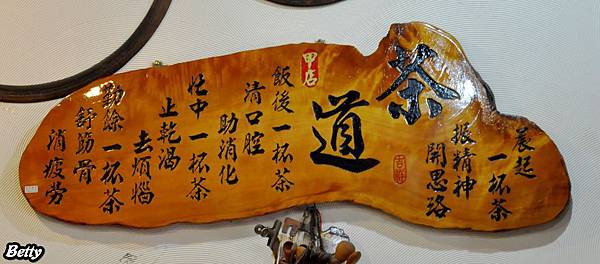 茶道
晨起一杯茶
振精神
開思路
飯後一杯茶
清口腔
助消化
忙中一杯茶
止乾渴
去煩惱
勤餘一杯茶
舒筋骨
消疲勞
甲店
Betty